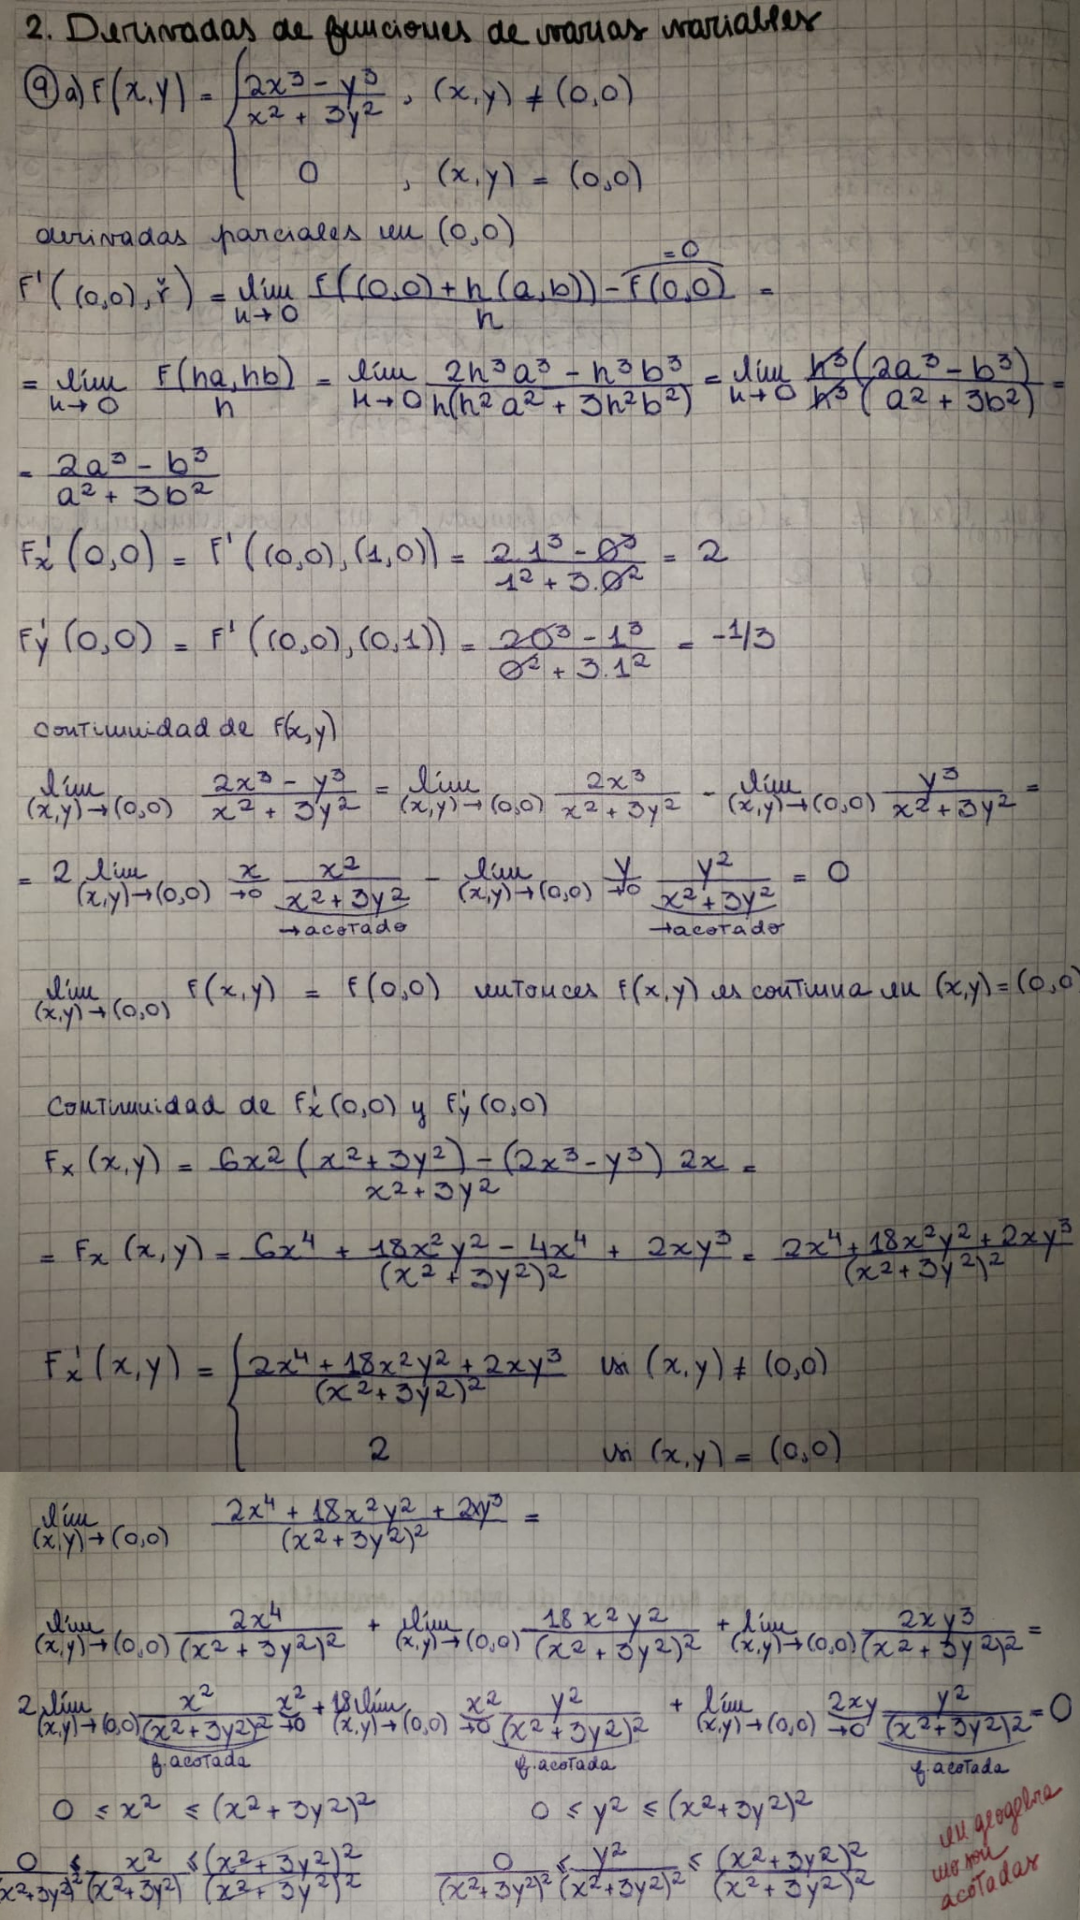 2. Derivadas de funciones de varias variables
9 a) F(x,y) = { (2x³ - y³)/(x² + 3y²) , (x,y) ≠ (0,0)
0 , (x,y) = (0,0)
derivadas parciales en (0,0)
F'((0,0), ř) = lím h→0 [F((0,0) + h(a,b)) - F(0,0)]/h = (=0)
= lím h→0 F(ha,hb)/h = lím h→0 (2h³a³ - h³b³)/(h(h²a² + 3h²b²)) = lím h→0 h³(2a³ - b³)/(h³(a² + 3b²)) =
= (2a³ - b³)/(a² + 3b²)
F'x(0,0) = F'((0,0),(1,0)) = (2.1³ - 0³)/(1² + 3.0²) = 2
F'y(0,0) = F'((0,0),(0,1)) = (20³ - 1³)/(0² + 3.1²) = -1/3
continuidad de F(x,y)
lím (x,y)→(0,0) (2x³ - y³)/(x² + 3y²) = lím (x,y)→(0,0) 2x³/(x² + 3y²) - lím (x,y)→(0,0) y³/(x² + 3y²) =
= 2 lím (x,y)→(0,0) x →0 x²/(x² + 3y²) →acotado - lím (x,y)→(0,0) y →0 y²/(x² + 3y²) →acotado = 0
lím (x,y)→(0,0) F(x,y) = F(0,0) entonces F(x,y) es continua en (x,y) = (0,0)
Continuidad de F'x(0,0) y F'y(0,0)
Fx(x,y) = (6x²(x² + 3y²) - (2x³ - y³) 2x)/(x² + 3y²) =
= Fx(x,y) = (6x⁴ + 18x²y² - 4x⁴ + 2xy³)/(x² + 3y²)² = (2x⁴ + 18x²y² + 2xy³)/(x² + 3y²)²
F'x(x,y) = { (2x⁴ + 18x²y² + 2xy³)/(x² + 3y²)² si (x,y) ≠ (0,0)
2 si (x,y) = (0,0)
lím (x,y)→(0,0) (2x⁴ + 18x²y² + 2xy³)/(x² + 3y²)² =
lím (x,y)→(0,0) 2x⁴/(x² + 3y²)² + lím (x,y)→(0,0) 18x²y²/(x² + 3y²)² + lím (x,y)→(0,0) 2xy³/(x² + 3y²)² =
2 lím (x,y)→(0,0) x²/(x² + 3y²)² x² →0 + 18 lím (x,y)→(0,0) x² →0 y²/(x² + 3y²)² + lím (x,y)→(0,0) 2xy →0 y²/(x² + 3y²)² = 0
f. acotada f. acotada f. acotada
0 ≤ x² ≤ (x² + 3y²)² 0 ≤ y² ≤ (x² + 3y²)²
0/(x² + 3y²)² ≤ x²/(x² + 3y²) ≤ (x² + 3y²)²/(x² + 3y²)² 0/(x² + 3y²)² ≤ y²/(x² + 3y²)² ≤ (x² + 3y²)²/(x² + 3y²)²
en geogebra
no son
acotadas